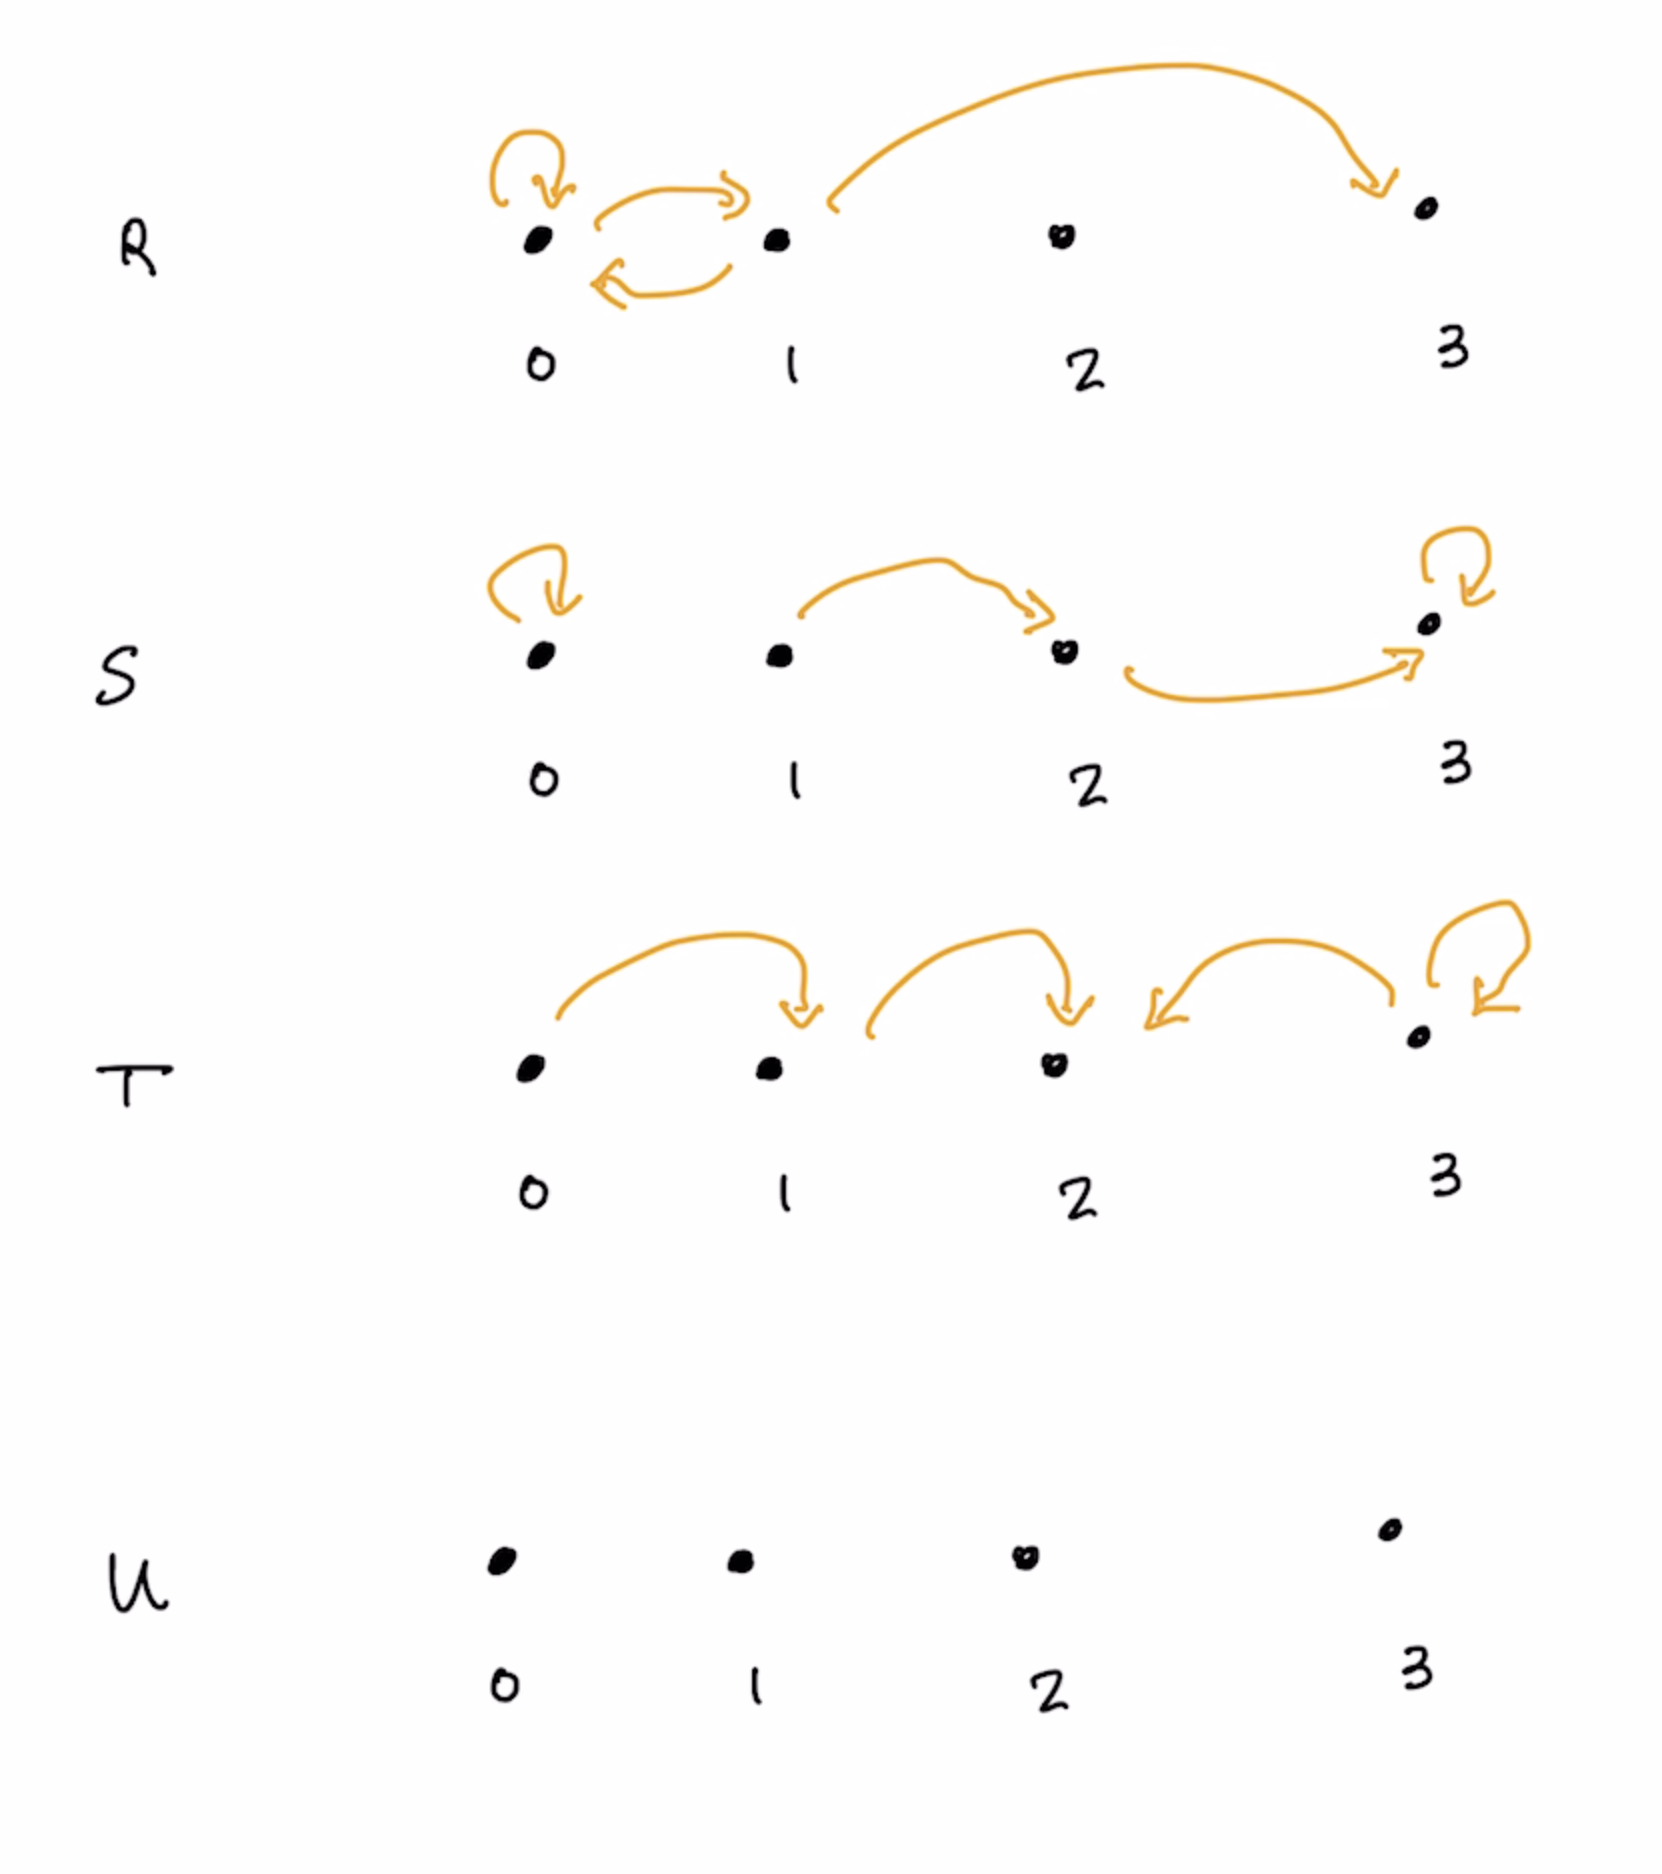 R
0 1 2 3
S
0 1 2 3
T
0 1 2 3
U
0 1 2 3